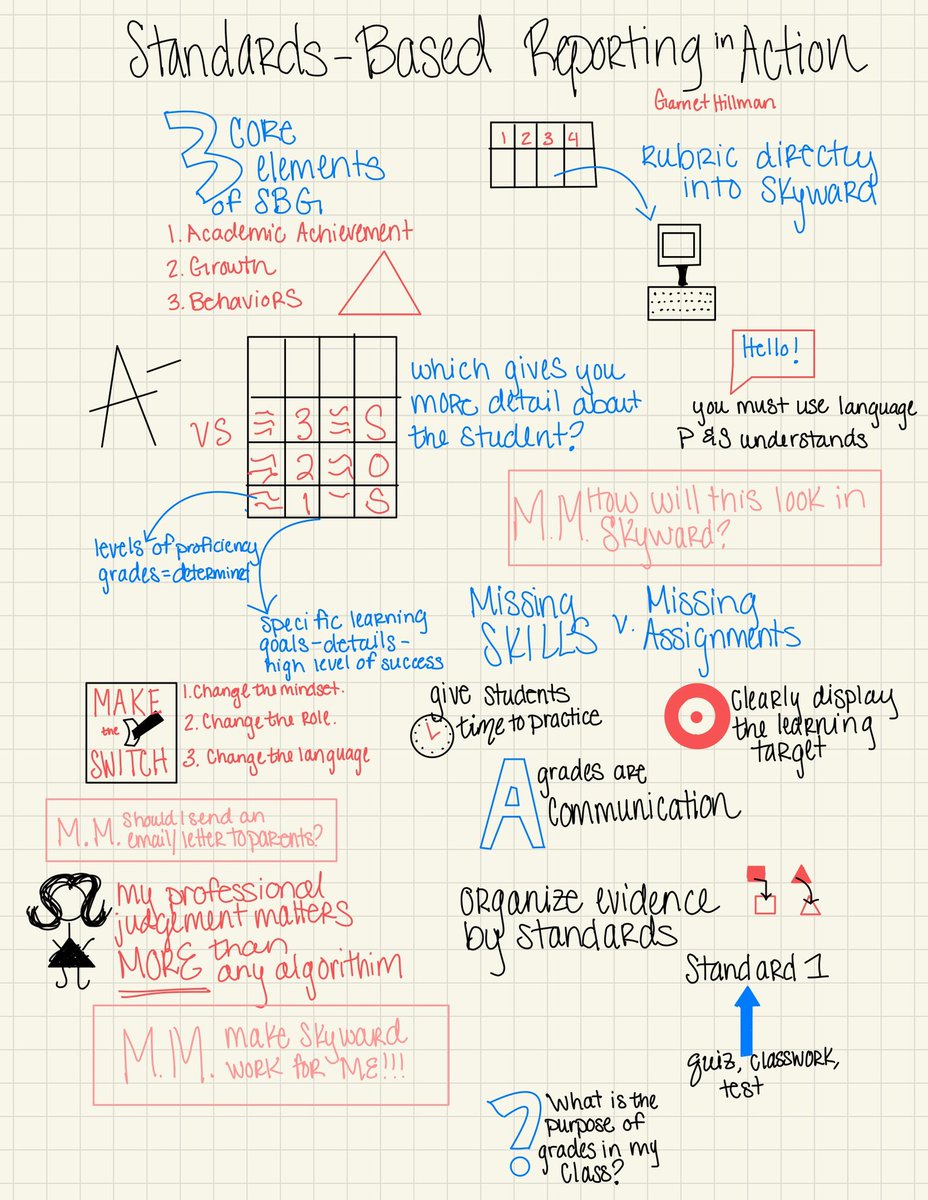 Standards-Based Reporting in Action
Garnet Hillman
3 core
elements
of SBG
1. Academic Achievement
2. Growth
3. Behaviors
1 2 3 4
Rubric directly
into Skyward
A-
vs
3 S
2 O
1 S
which gives you
more detail about
the student?
Hello!
you must use language
P & S understands
M.M. How will this look in
Skyward?
levels of proficiency
grades = determined
specific learning
goals-details-
high level of success
Missing
SKILLS
v.
Missing
Assignments
MAKE
the
SWITCH
1. Change the mindset.
2. Change the role.
3. Change the language
give students
time to practice
Clearly display
the learning
target
A grades are
communication
M.M. Should I send an
email/letter to parents?
my professional
judgement matters
MORE than
any algorithim
organize evidence
by standards
Standard 1
quiz, classwork,
test
M.M. make Skyward
work for ME!!!
? What is the
purpose of
grades in my
class?